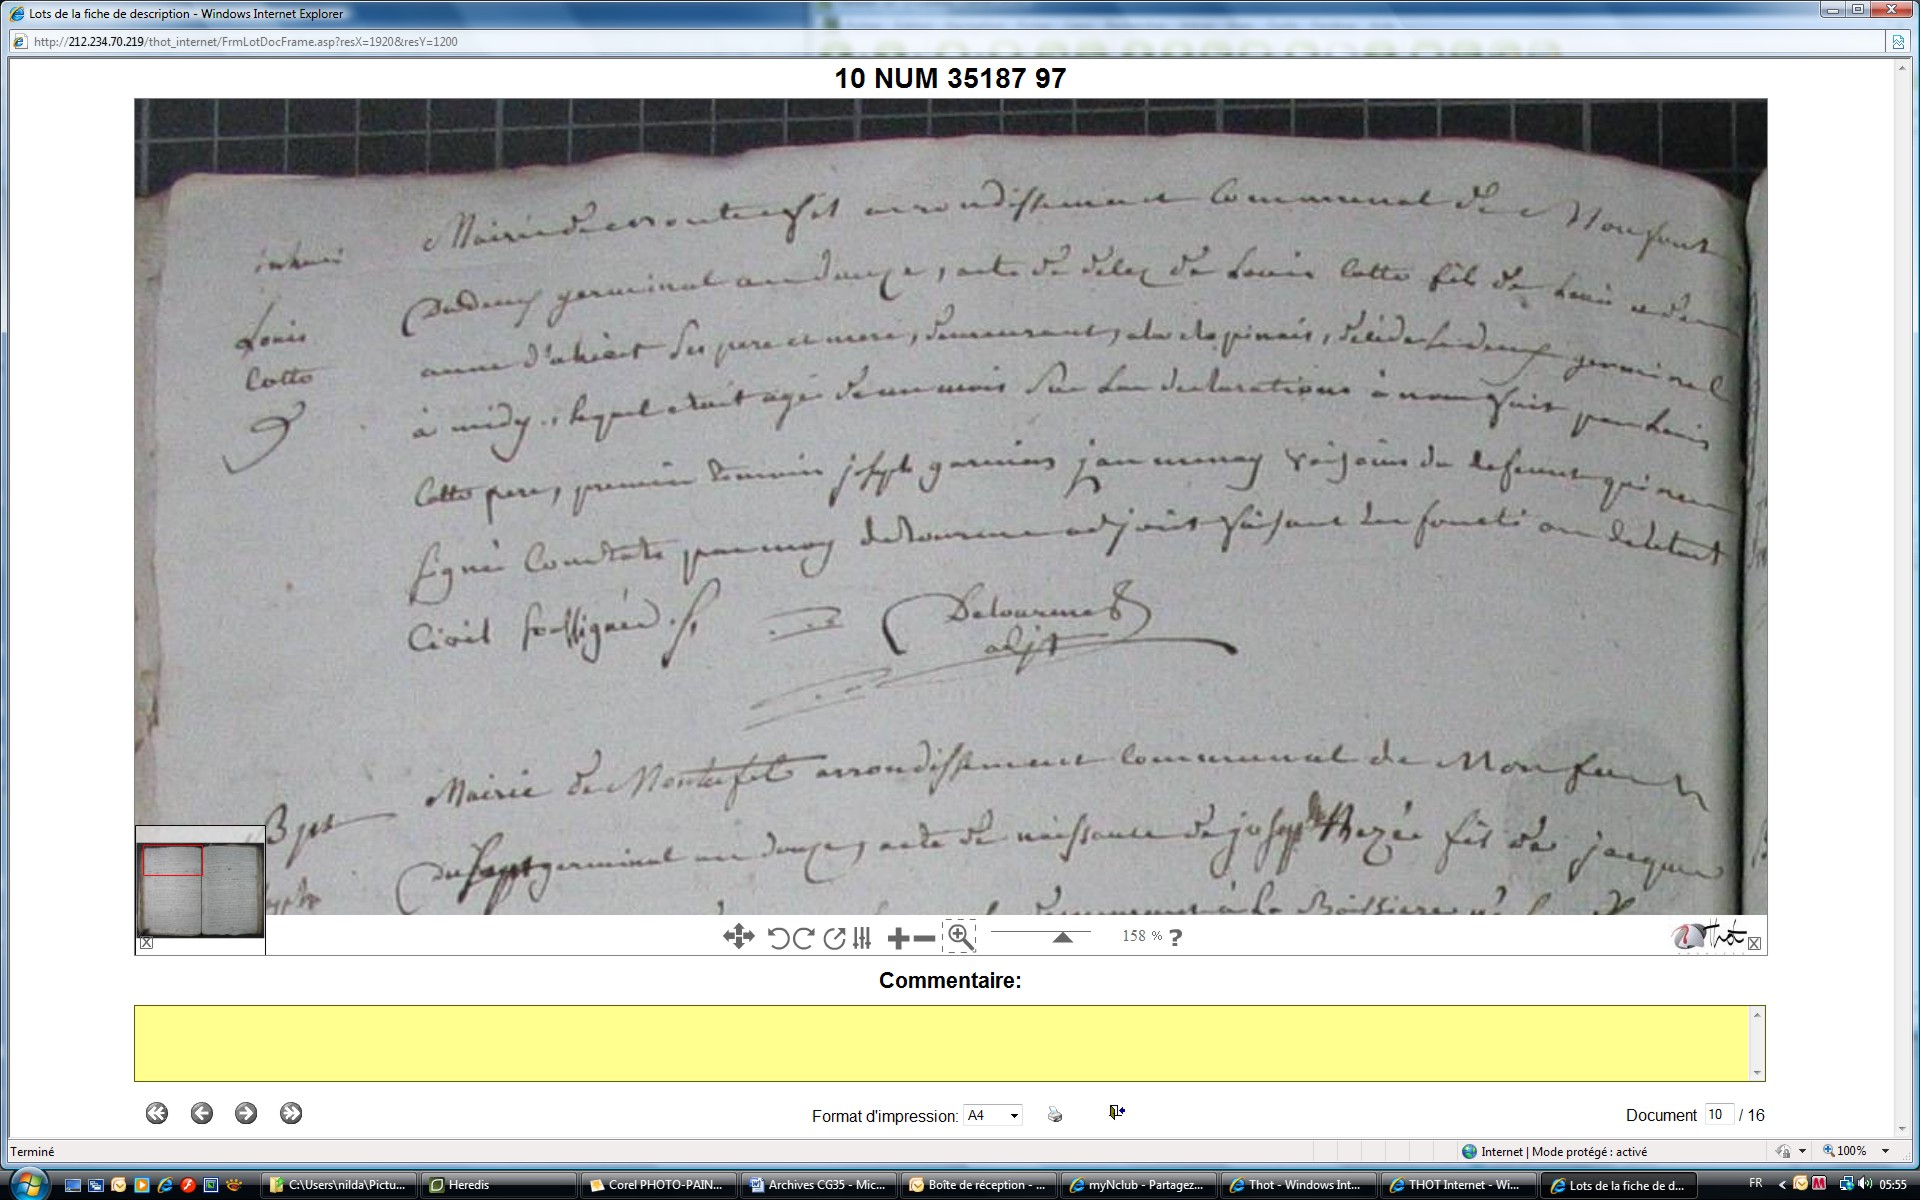 Lots de la fiche de description - Windows Internet Explorer
http://212.234.70.219/thot_internet/FrmLotDocFrame.asp?resX=1920&resY=1200
10 NUM 35187 97
Mairie de arrondissement Communal de Monfort
inhumé
Du deux germinal an douze, acte de décez de Louis Cotto fils de Louis
Louis
Cotto
anne d'ahiert Ses pere et mere, demeurants, décédé Le deux germinal
à midy, lequel etoit agé de un mois Sur Les declarations à nous fait par Louis
Cotto pere, premier temoin joseph jan voisoins du defunt qui
signé Constaté par moy delourme adjoint faisant les foncti on de letat
Civil soussigné
Delourme
adjt
Mairie de Monterfil arrondissement Communal de Monfort
Du Sept germinal an douze, acte de naissance de joseph fils de jacques
à La Boissiere
158 % ?
Thot
Commentaire:
Format d'impression: A4
Document 10 / 16
Terminé
Internet | Mode protégé : activé
100%
C:\Users\nilda\Pictu...
Heredis
Corel PHOTO-PAIN...
Archives CG35 - Mic...
Boîte de réception - ...
myNclub - Partagez...
Thot - Windows Int...
THOT Internet - Wi...
Lots de la fiche de d...
FR
05:55